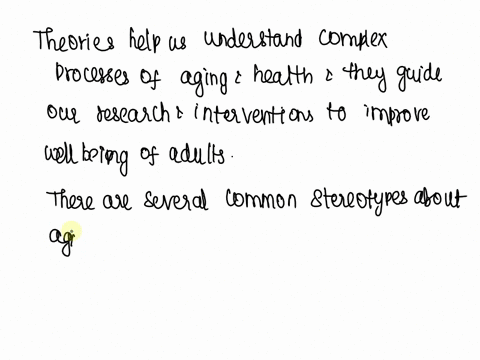 Theories help us understand complex
processes of aging & health & they guide
our research & interventions to improve
well being of adults.
There are several common stereotypes about
agi